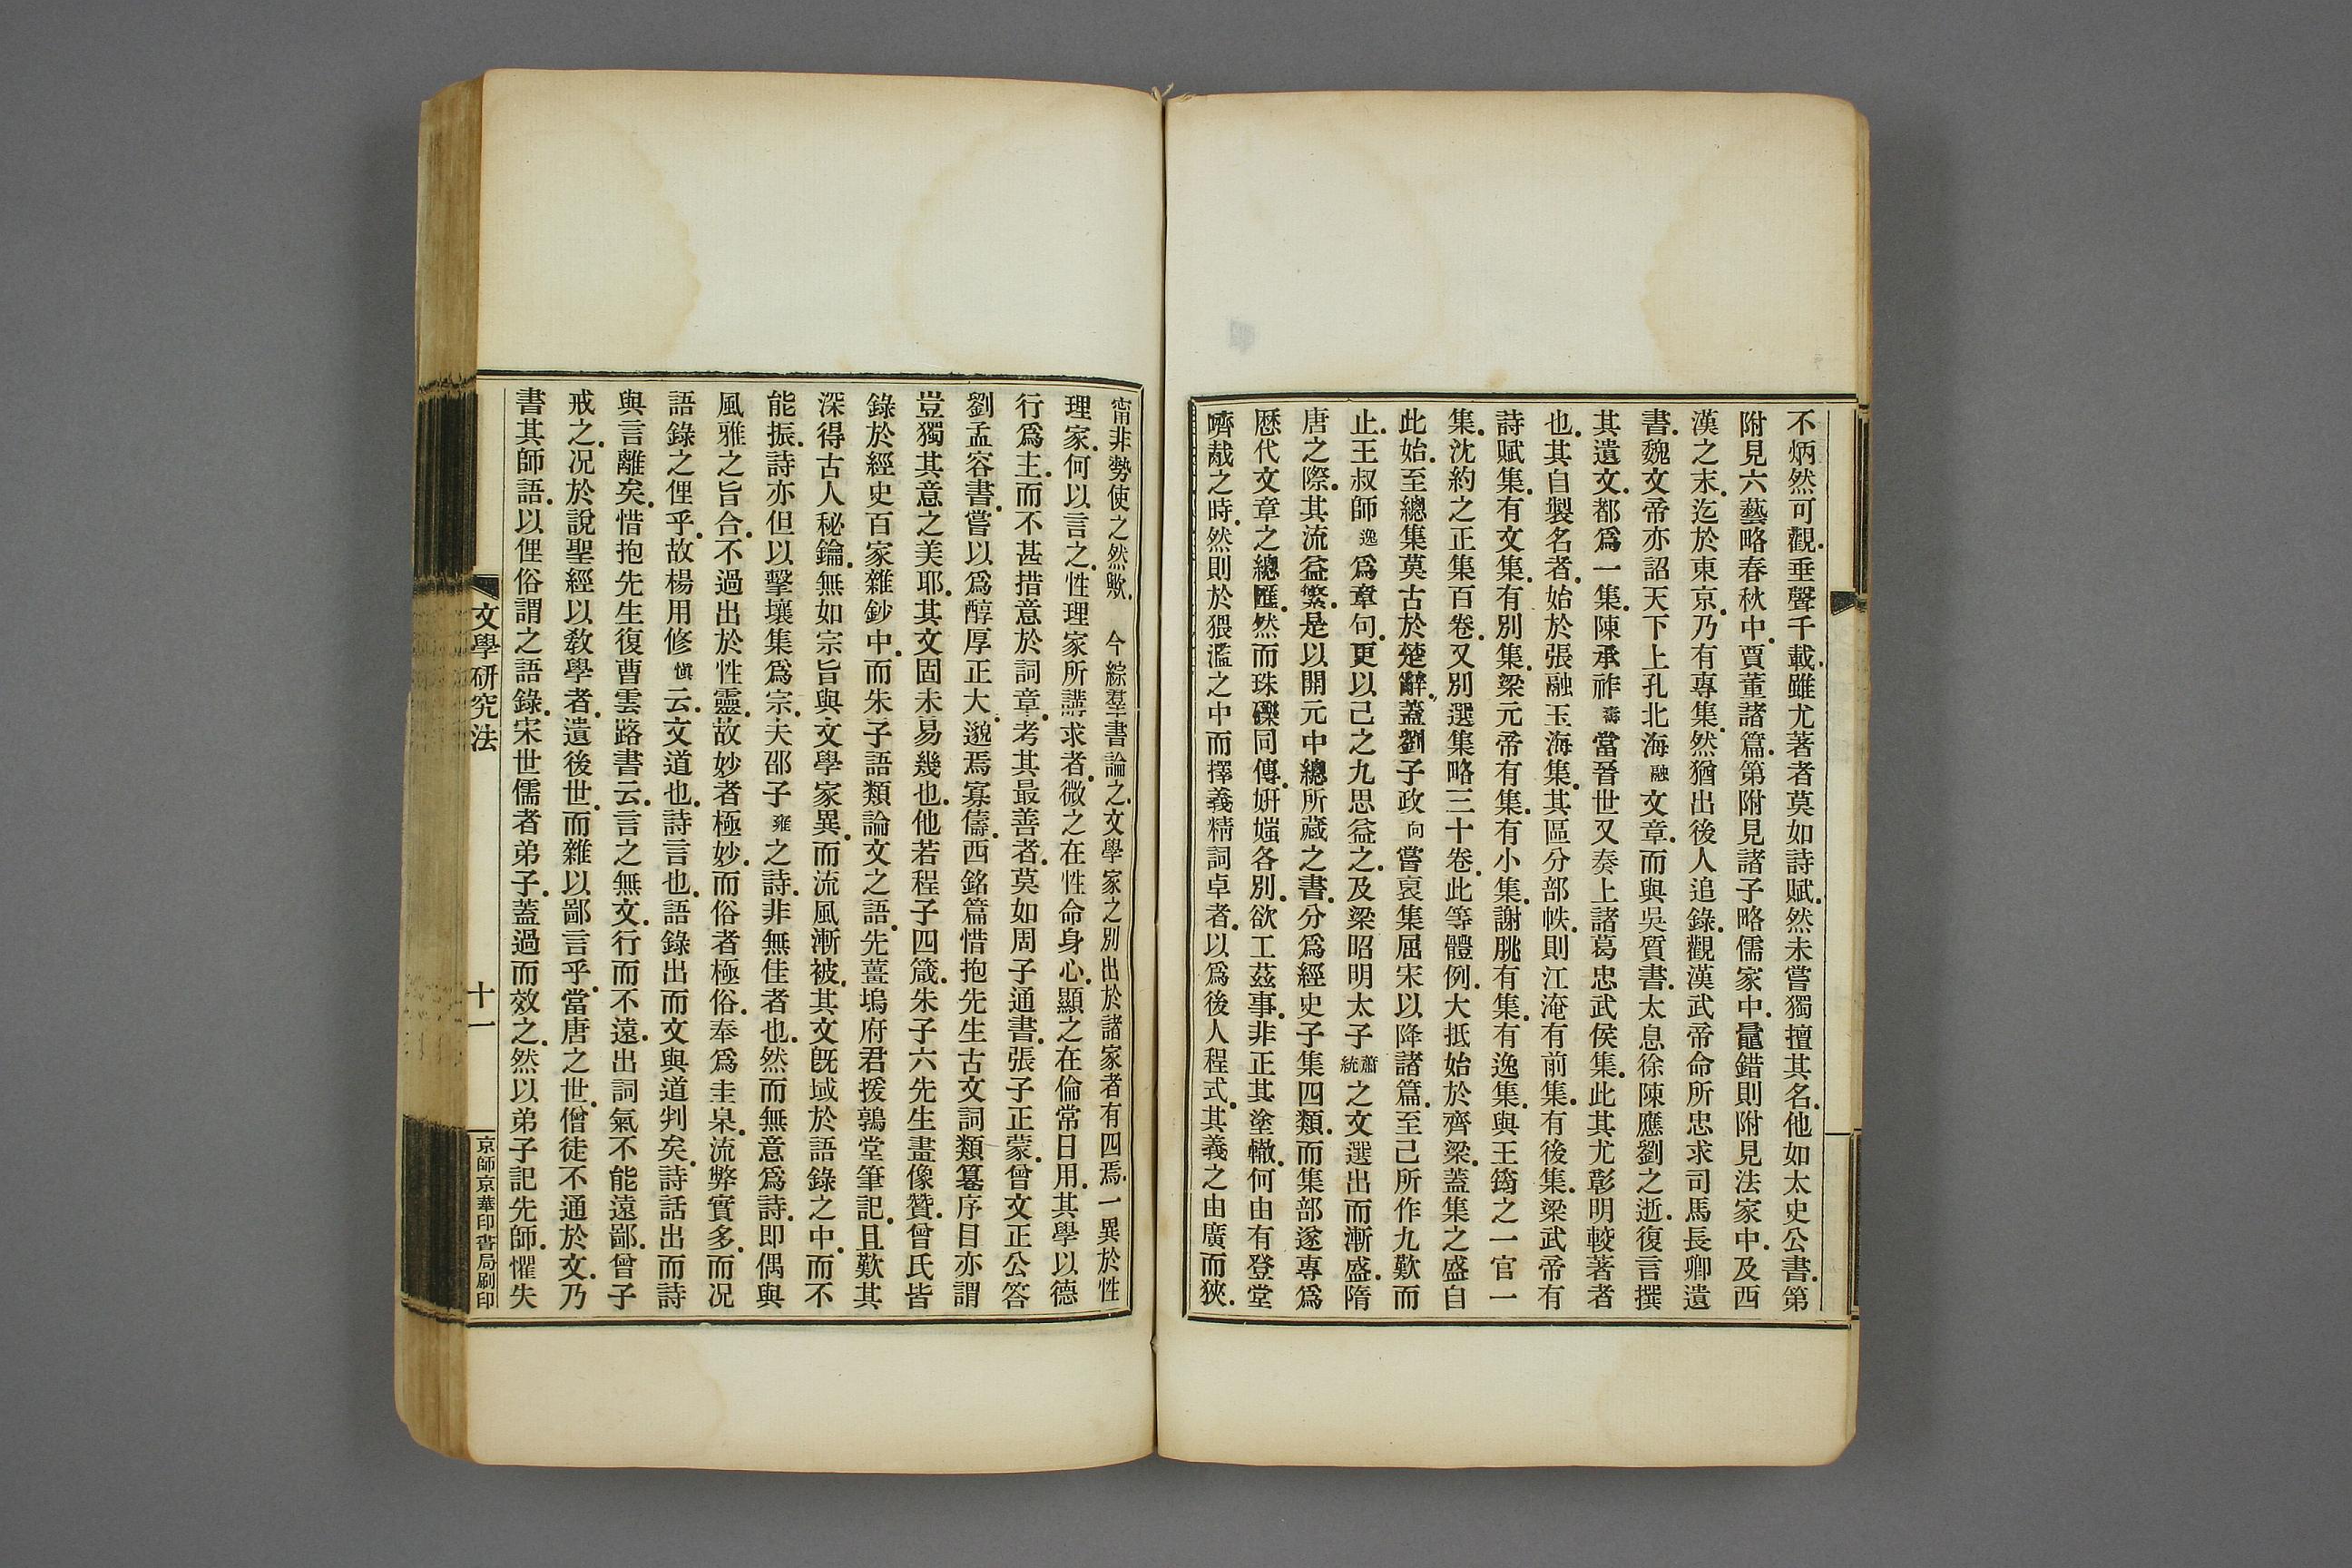 不炳然可觀.垂聲千載.雖尤著者莫如詩賦.然未嘗獨擅其名.他如太史公書.第
附見六藝略春秋中.賈董諸篇.第附見諸子略儒家中.鼂錯則附見法家中.及西
漢之末.迄於東京.乃有專集.然猶出後人追錄.觀漢武帝命所忠求司馬長卿遺
書.魏文帝亦詔天下上孔北海融文章.而與吳質書.太息徐陳應劉之逝.復言撰
其遺文.都爲一集.陳承祚壽當晉世又奏上諸葛忠武侯集.此其尤彰明較著者
也.其自製名者.始於張融玉海集.其區分部帙.則江淹有前集.有後集.梁武帝有
詩賦集.有文集.有別集.梁元帝有集.有小集.謝朓有集.有逸集.與王筠之一官一
集.沈約之正集百卷.又別選集略三十卷.此等體例.大抵始於齊梁.蓋集之盛自
此始.至總集莫古於楚辭.蓋劉子政向嘗裒集屈宋以降諸篇.至己所作九歎而
止.王叔師逸爲章句.更以己之九思益之.及梁昭明太子蕭統之文選出而漸盛.隋
唐之際.其流益繁.是以開元中總所藏之書.分爲經史子集四類.而集部遂專爲
歷代文章之總匯.然而珠礫同傳.妍媸各別.欲工茲事.非正其塗轍.何由有登堂
嚌胾之時.然則於猥濫之中而擇義精詞卓者.以爲後人程式.其義之由廣而狹.
甯非勢使之然歟.　今綜羣書論之.文學家之別出於諸家者有四焉.一異於性
理家.何以言之.性理家所講求者.微之在性命身心.顯之在倫常日用.其學以德
行爲主.而不甚措意於詞章.考其最善者.莫如周子通書.張子正蒙.曾文正公答
劉孟容書.嘗以爲醇厚正大.邈焉寡儔.西銘篇惜抱先生古文詞類篹序目亦謂
豈獨其意之美耶.其文固未易幾也.他若程子四箴.朱子六先生畫像贊.曾氏皆
錄於經史百家雜鈔中.而朱子語類論文之語.先薑塢府君援鶉堂筆記.且歎其
深得古人秘鑰.無如宗旨與文學家異.而流風漸被.其文旣域於語錄之中.而不
能振.詩亦但以擊壤集爲宗.夫邵子雍之詩.非無佳者也.然而無意爲詩.即偶與
風雅之旨合.不過出於性靈.故妙者極妙.而俗者極俗.奉爲圭臬.流弊實多.而况
語錄之俚乎.故楊用修愼云.文道也.詩言也.語錄出而文與道判矣.詩話出而詩
與言離矣.惜抱先生復曹雲路書云.言之無文.行而不遠.出詞氣不能遠鄙.曾子
戒之.况於說聖經以敎學者.遺後世.而雜以鄙言乎.當唐之世.僧徒不通於文.乃
書其師語.以俚俗謂之語錄.宋世儒者弟子.蓋過而效之.然以弟子記先師.懼失
文學研究法
十一
京師京華印書局刷印